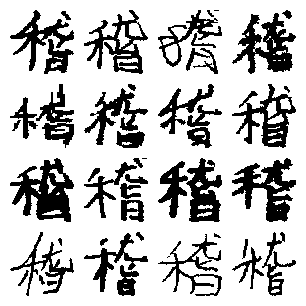 稽稽稽稽
稽稽稽稽
稽稽稽稽
稽稽稽稽